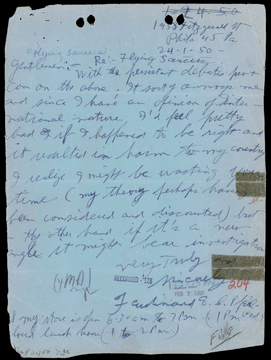 1938 Fitzgerald St
Phila 45 Pa
24-1-50-
Flying Saucers
Gentlemen:- Re:- Flying Saucers
With the persistent debates pro &
con on the above. It sort of annoys me
and since I have an opinion of inter-
national nature. I'd feel pretty
bad if I happened to be right and
it resulted in harm to my country
I realize I might be wasting your
time (my theory perhaps having
been considered and discounted) but
on the other hand if it's a new
angle it might bear investigation
Very Truly
Sincerely
RECORDED
204
Ferdinand
I my store is open 8:30 am to 7 Pm (1 Pm Wed)
closed lunch hour (1 to 2 Pm)